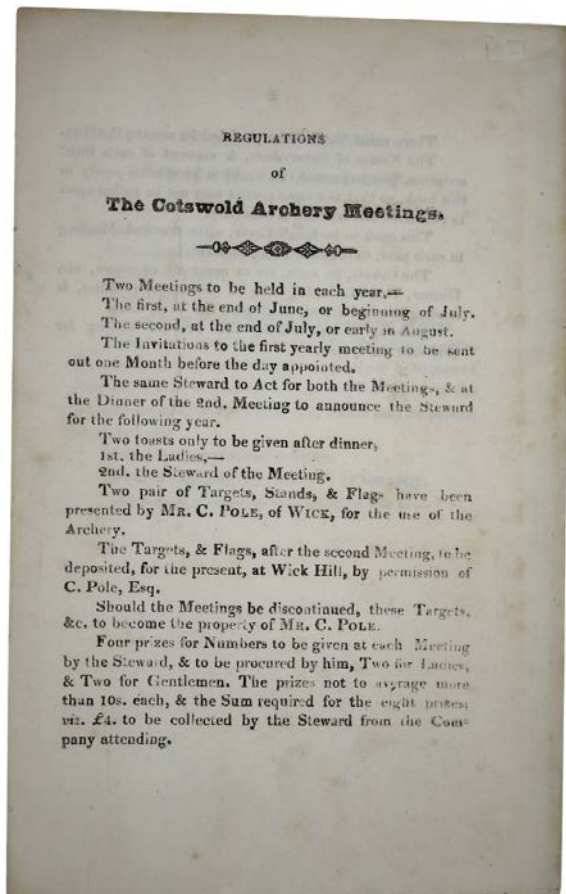 REGULATIONS
of
The Cotswold Archery Meetings.
Two Meetings to be held in each year,—
The first, at the end of June, or beginning of July.
The second, at the end of July, or early in August.
The Invitations to the first yearly meeting to be sent
out one Month before the day appointed.
The same Steward to Act for both the Meetings, & at
the Dinner of the 2nd. Meeting to announce the Steward
for the following year.
Two toasts only to be given after dinner,
1st. the Ladies,—
2nd. the Steward of the Meeting.
Two pair of Targets, Stands, & Flags have been
presented by MR. C. POLE, of WICK, for the use of the
Archery.
The Targets, & Flags, after the second Meeting, to be
deposited, for the present, at Wick Hill, by permission of
C. Pole, Esq.
Should the Meetings be discontinued, these Targets,
&c. to become the property of MR. C. POLE.
Four prizes for Numbers to be given at each Meeting
by the Steward, & to be procured by him, Two for Ladies,
& Two for Gentlemen. The prizes not to average more
than 10s. each, & the Sum required for the eight prizes,
viz. £4. to be collected by the Steward from the Com-
pany attending.